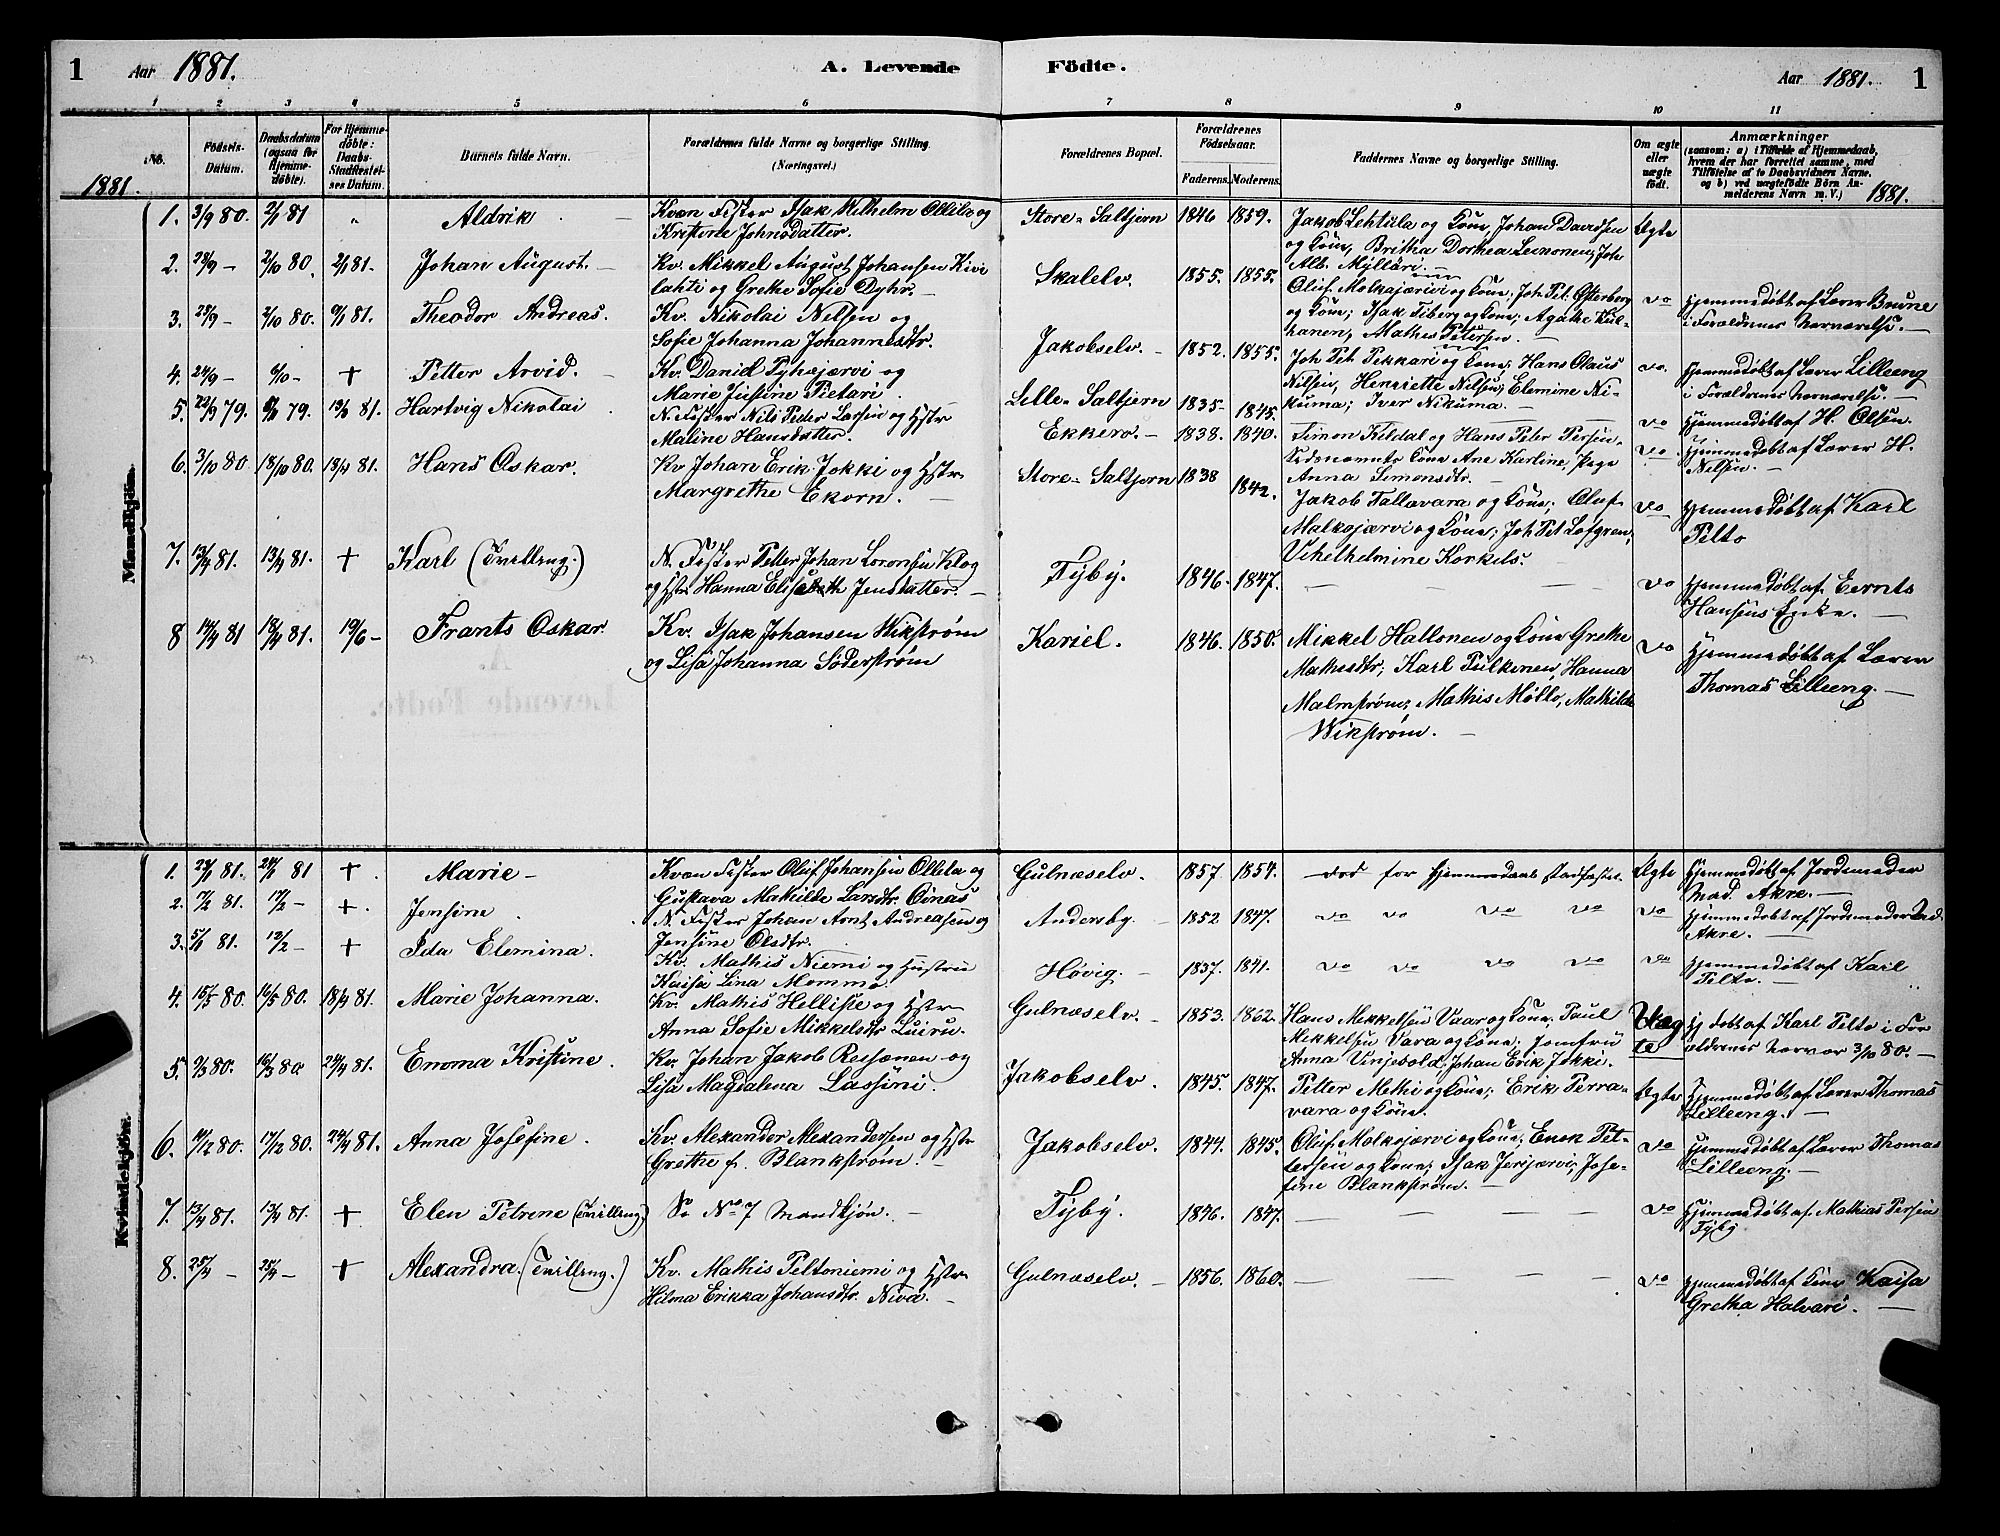 1 Aar 1881. A. Levende Födte. Aar 1881. 1
1 2 3 4 5 6 7 8 9 10 11
No. Födsels-Datum. Daabsdatum (ogsaa for Hjemmedöbte). For Hjemmedöbte: Daabs-Stadfæstelses Datum. Barnets fulde Navn. Forældrenes fulde Navne og borgerlige Stilling. (Næringsvei.) Forældrenes Bopæl. Forældrenes Födselsaar. Faderens. Moderens. Faddernes Navne og borgerlige Stilling. Om ægte eller uægte födt. Anmærkninger (saasom: a) i Tilfælde af Hjemmedaab, hvem der har forrettet samme, med Tilföielse af to Daabsvidners Navne, og b) ved uægtefödte Börn Anmelderens Navn m. V.)
1881. 1881.
Mandkjön.
1. 3/9 80. 2/1 81 " Aldrik Kvæn Fisker Isak Wilhelm Ollila og
Kristine Johnsdatter. Store-Saltjern 1846 1859. Jakob Lehtula og Kone, Johan Davidsen
og Kone, Britha Dorthea Leinonen, Joh
Alb. Myllari. Ægte
2. 28/9 – 2/10 80. 2/1 81. Johan August. Kv. Mikkel August Johansen Kivi
lahti og Grethe Sofie Dyhr. Skalelv. 1855. 1855. Oluf Molkajærvi og Kone; Joh Pet. Østerberg
og Kone; Isak Fiberg og Kone; Agathe Kul-
hanen, Mathis Petersen. do Hjemmedøbt af Lærer Brune
i Forældrenes Nærværelse.
3. 29/9 – 2/10 80. 9/1 81. Theodor Andreas. Kv. Nikolai Nilsen og
Sofie Johanna Johannesdtr. Jakobselv. 1852. 1855. Joh Pet. Pekkari og Kone; Hans Olaus
Nilsen, Henriette Nilsen; Elemine Ni-
kuma; Iver Nikuma. do. Hjemmedøbt af Lærer Lilleeng
i Forældrenes Nærværelse.
4. 24/9 – 6/10 – + Petter Arvid. Kv. Daniel Pyhæjærvi og
Marie Justine Pietari. Lille-Saltjern 1835 1845. do Hjemmedøbt af H. Olsen.
5. 79. 79. 81. Hartvig Nikolai N. Fisker Nils Peder Larsen og Hstr
Maline Hansdatter. Ekkerø. 1838. 1840. Simon Kildal og Hans Peter Persen
Sidstnævnte Kone Ane Karline, Pige
Anna Simonsdtr. do. Hjemmedøbt af Lærer H.
Nilsen.
6. 3/10 80 18/10 80. 18/4 81. Hans Oskar. Kv Johan Erik Jokki og Hstr
Margrethe Ekorn. Store-Saltjern 1838 1842. Jakob Tallavara og Kone; Oluf
Molkajærvi og Kone; Joh Pet Lofgren,
Vihelhelmine Korkels. do Hjemmedøbt af Karl
Pelto
7. 13/4 81. 13/4 81. + Karl (Tvilling.) N. Fisker Petter Johan Lorensen Klog
og Hstr Hanna Elisabeth Jensdatter. Tyby. 1846. 1847. do Hjemmedøbt af Eernts
Hansens Enke.
8 14/4 81 18/4 81. 19/6 – Frants Oskar. Kv. Isak Johansen Wikstrøm
og Lisa Johanna Söderstrøm Kariel. 1846. 1850. Mikkel Hallonen og Kone Grethe
Mathisdtr; Karl Pulkenen, Hanna
Malmstrøm; Mathis Møtto, Mathilde
Wikstrøm. do Hjemmedøbt af Lærer
Thomas Lilleeng.
Kvindekjön.
1. 23/1 81. 24/1 81 + Marie Kvæn Fisker Oluf Johansen Ollila og
Gustava Mathilde Larsdtr. Oinas Gulnæselv. 1857 1854. død før Hjemmedaabs Stadfæstel. Ægte Hjemmedøbt af Jordemoder
Mad. Akre.
2. 7/2 81. 17/2 – + Jensine N. Fisker Johan Arnt Andreasen og
Jensine Olsdtr. Andersby. 1852 1847. do do do do do Hjemmedøbt af Jordemoder Mad.
Akre.
3. 5/1 81. 12/2 – + Ida Elemina. Kv. Mathis Niemi og Hustru
Kaisa Lina Momma. Høvig. 1837. 1841. do do do do do Hjemmedøbt af Karl
Pelto.
4. 15/5 80. 16/5 80. 18/4 81. Marie Johanna. Kv. Mathis Helliste og Hstr
Anna Sofie Mikkelsdtr Luiru. Gulnæselv. 1853. 1862. Hans Mikkelsen Vaar og Kone; Paul
Mikkelsen Vara og Kone; Jomfru
Anna Vinjebold, Johan Erik Jokki. Uæg
te Hj døbt af Karl Pelto i For
ældrenes Nærvær 3/10 80.
5. 9/3 80. 16/3 80. 24/4 81. Emma Kristine. Kv. Johan Jakob Reisænen og
Lisa Magdalena Lassini. Jakobselv. 1845. 1847. Petter Methi og Kone; Erik Perra-
vara og Kone. Ægte Hjemmedøbt af Lærer Thomas
Lilleeng.
6. 10/12 80. 17/12 80. 24/4 81. Anna Josefine. Kv. Alexander Alexandersen og Hstr
Grethe f. Blankstrøm. Jakobselv. 1844. 1845. Oluf Molkajærvi og Kone; Enok Pet-
tersen og Kone; Isak Jerijærvi; Jose-
fine Blankstrøm. do Hjemmedøbt af Lærer Thomas
Lilleeng.
7. 13/4 81. 13/4 81. + Elen Petrine (Tvilling) Se No 7 Mandkjön. Tyby. 1846. 1847. do Hjemmedøbt af Mathias Persen
Tyby
8. 25/4 – 25/4 – + Alexandra. (Tvilling.) Kv. Mathis Peltoniemi og Hstr
Hilma Erikka Johansdtr. Niva. Gulnæselv. 1856. 1860. do Hjemmedøbt af Kone Kaisa
Gretha Halvari.